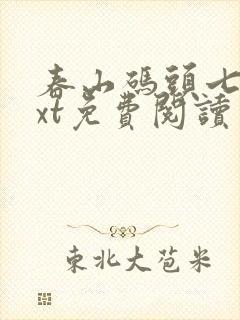 春山碼頭七
xt免費閱讀
東北大苞米